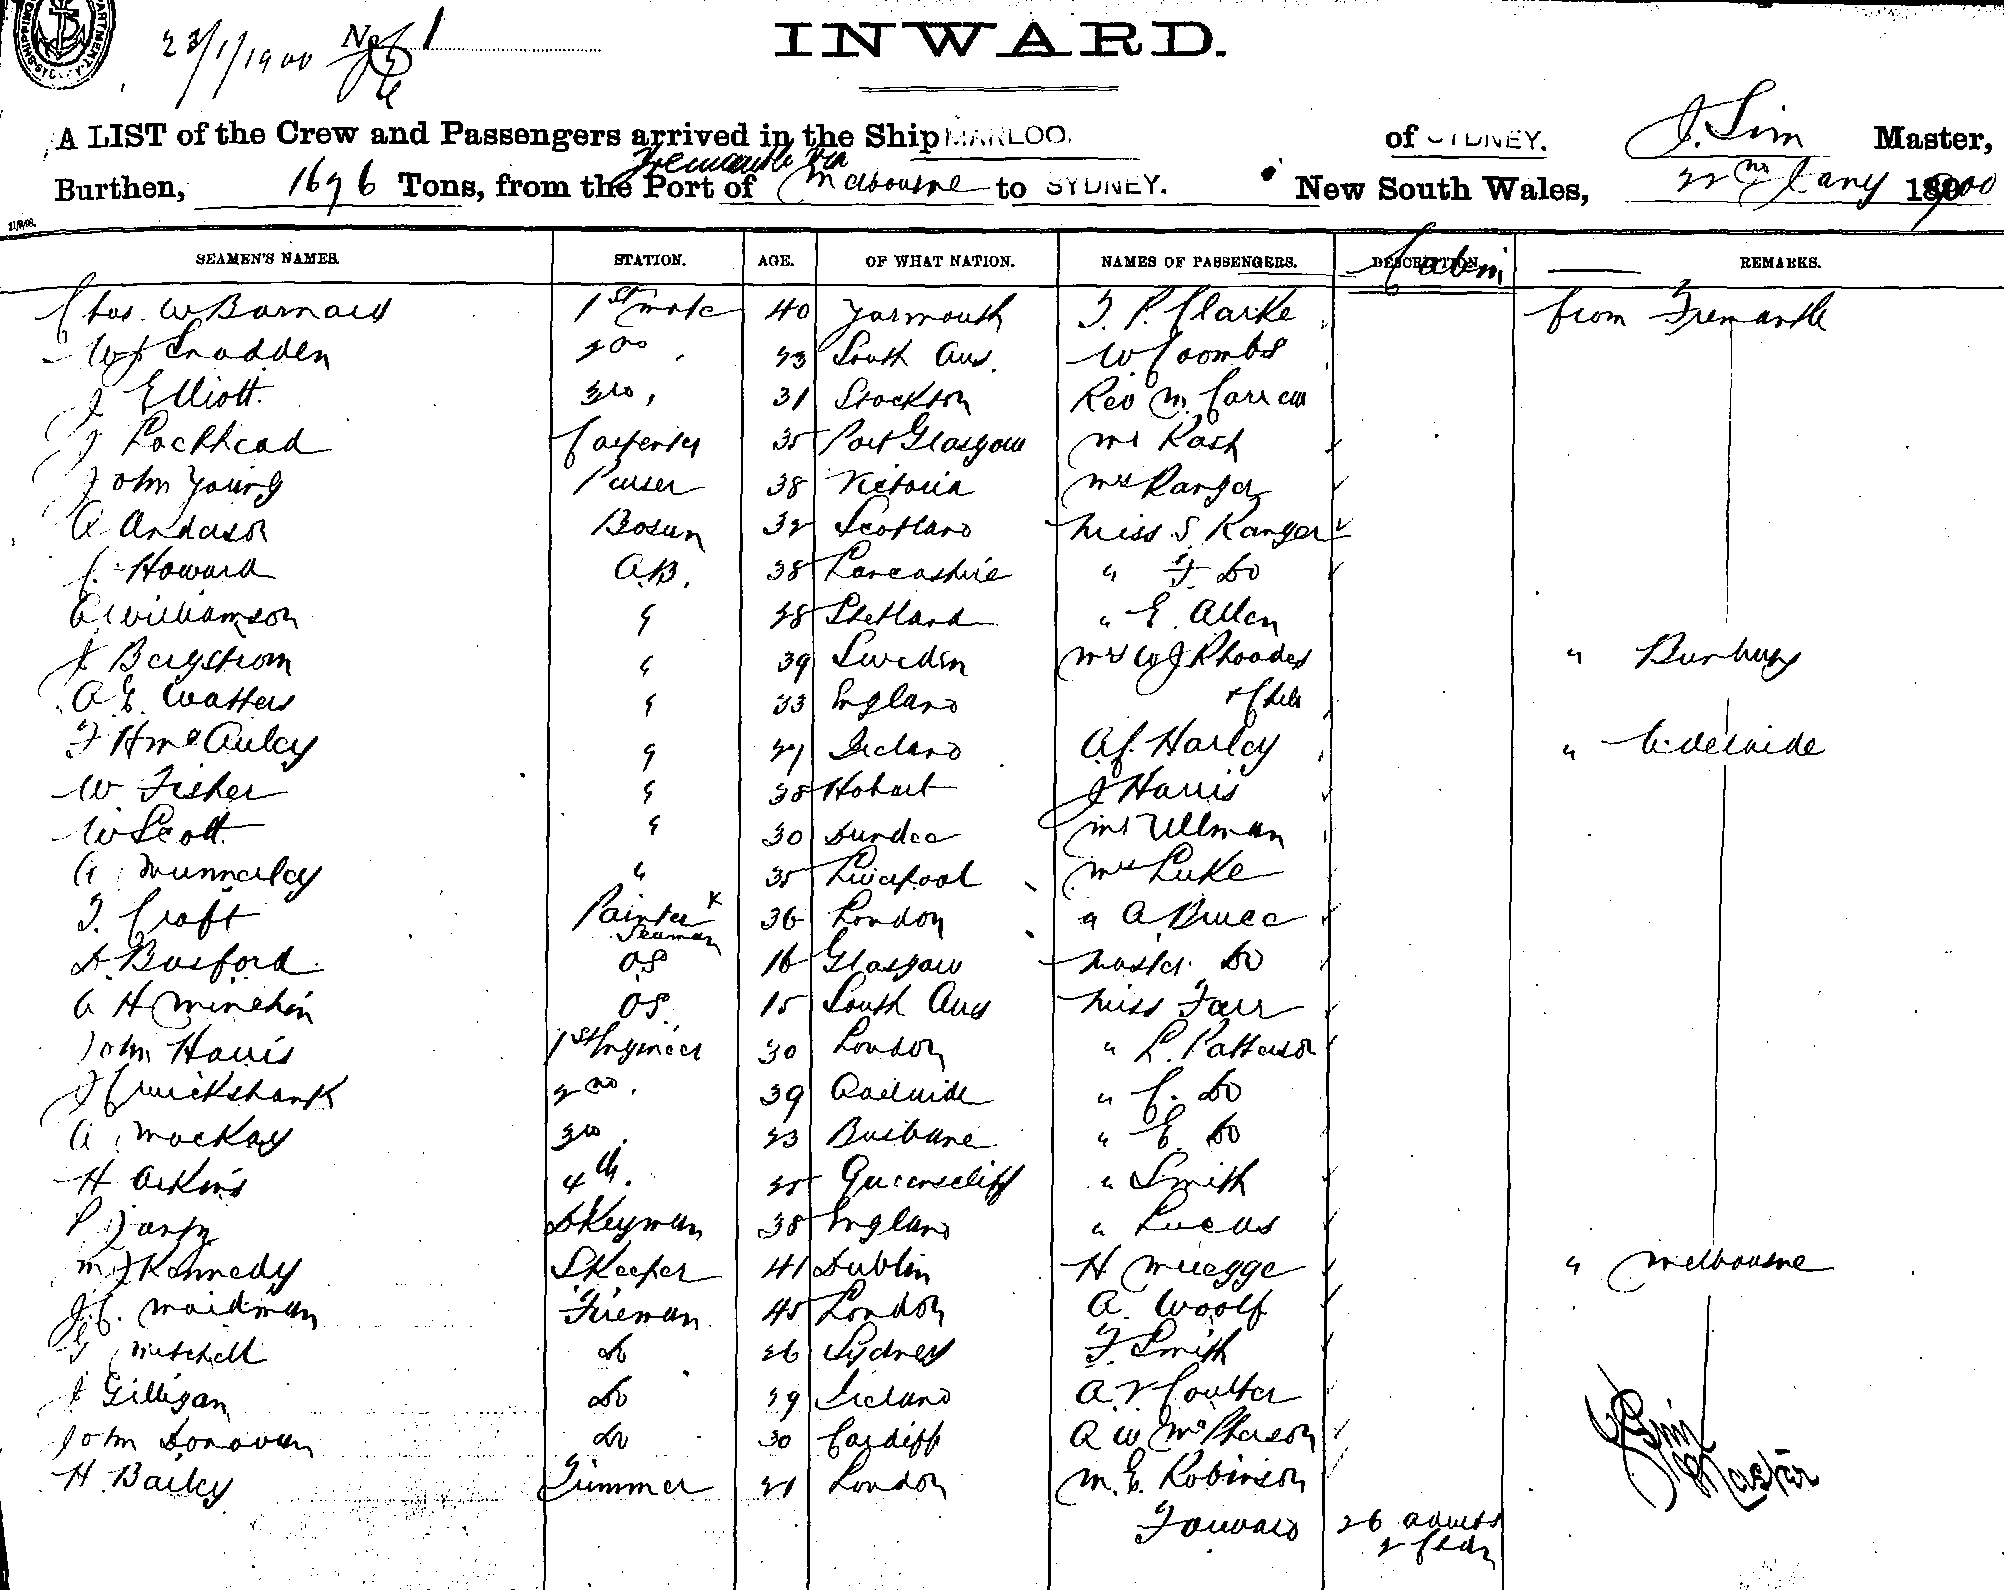 23/1/1900 No 1
INWARD.
A LIST of the Crew and Passengers arrived in the Ship MARLOO. of SYDNEY. J. Sim Master,
Burthen, 1696 Tons, from the Port of Fremantle via Melbourne to SYDNEY. New South Wales, 22nd Jany 1900
SEAMEN'S NAMES STATION. AGE. OF WHAT NATION. NAMES OF PASSENGERS. DESCRIPTION. Cabin REMARKS.
Chas. W Barnard 1st mate 40 Yarmouth T. P. Clarke from Fremantle
W J Snadden 2nd 23 South Aus. W Coombs
J Elliott. 3rd, 31 Stockton Rev M. Carrew
J Lochhead Carpenter 35 Port Glasgow Mr Rash
John Young Purser 38 Victoria Mrs Ranger
A Anderson Bosun 32 Scotland Miss S. Ranger
C. Howard A.B. 38 Lancashire " F. Do
A Williamson " 28 Shetland " E. Allen
J Bergstrom " 39 Sweden Mrs W J Rhoades " Bunbury
A. E. Watters " 33 England + Chld
F H McAuley " 27 Ireland A C. Harley " Adelaide
W. Fisher " 38 Hobart J Harris
W Scott. " 30 Dundee Mr Ullman
A Nunnerley " 35 Liverpool Mrs Luke
T. Croft Painter & Seaman 36 London " A. Bruce
D. Bosford OS 16 Glasgow Master Do
A H Minchin OS. 15 South Aus Miss Farr
John Harris 1st Engineer 30 London " L. Patterson
J Cruickshank 2nd. 39 Adelaide " C. Do
A. MacKay 3rd. 23 Brisbane " E. Do
H Atkins 4th. 25 Queenscliff " Smith
P DKeyman 38 England " Lucas
M J Kennedy SKeeper 41 Dublin H Muegge " Melbourne
J. C. Maidman Fireman 45 London A. Woolf
G Mitchell do 26 Sydney F. Smith
J Gilligan Do 29 Ireland A. V. Coulter
John Donovan Do 30 Cardiff A W McPherson
H. Bailey Trimmer 21 London M. E. Robinson
J Sim
Master
Forward 26 adults
2 Chdn